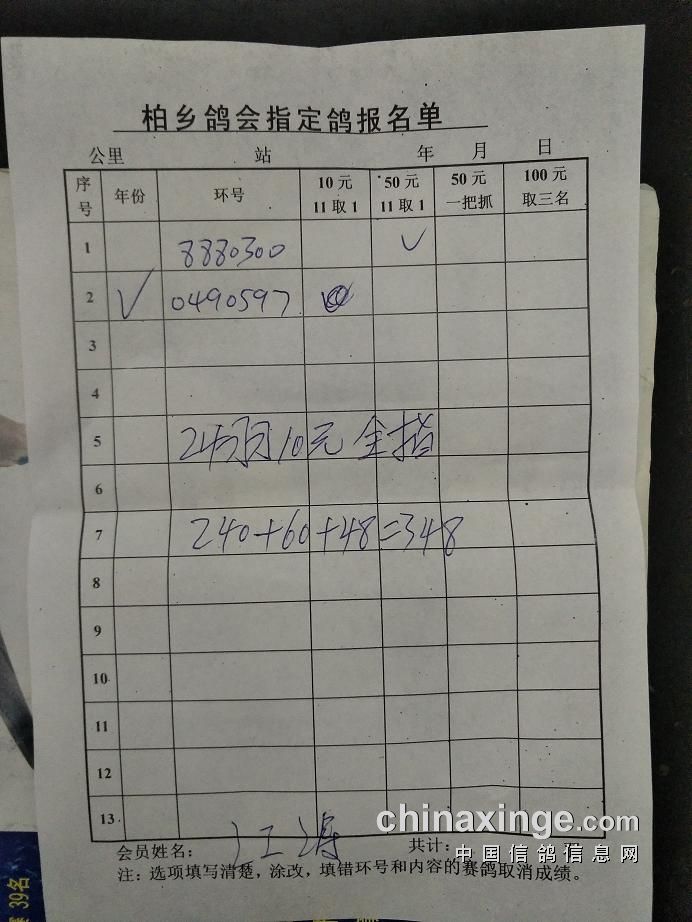 柏乡鸽会指定鸽报名单
公里 站 年 月 日
序号 年份 环号 10元 11取1 50元 11取1 50元 一把抓 100元 取三名
1 8880300 √
2 √ 0490597
3
4
5 24羽 10元全指
6
7 240+60+48=348
8
9
10
11
12
13
会员姓名: 江涛 共计:
注:选项填写清楚,涂改,填错环号和内容的赛鸽取消成绩。
chinaxinge.com
中国信鸽信息网
39名